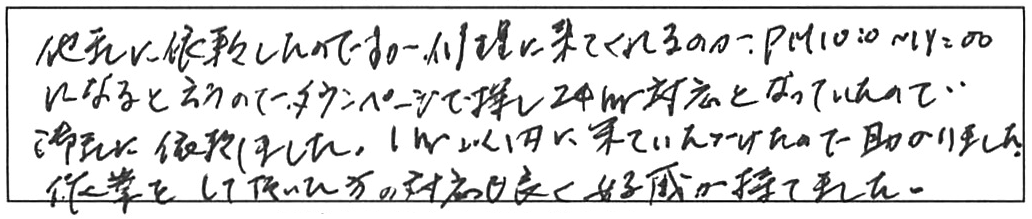 他社に依頼したのですが、修理に来てくれるのが、PM10:0〜11:00
になると言うので、タウンページで探し24hr対応となっていたので、
御社に依頼しました。1hr以内に来ていただけたので助かりました。
作業をして頂いた方の対応も良く好感が持てました。